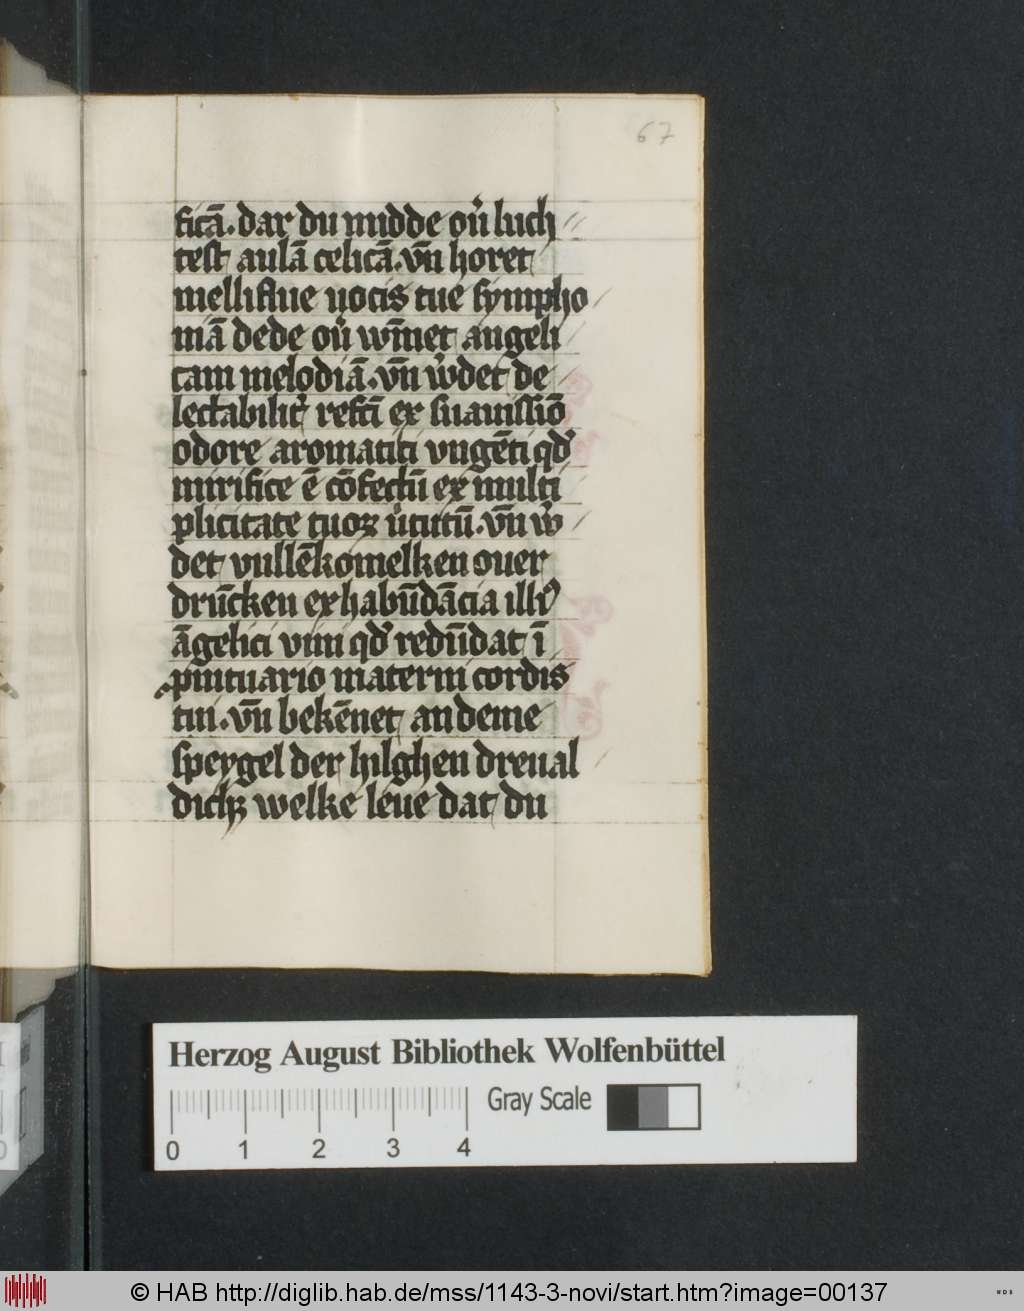 67
ficā. dar du midde ou̓ luch
test aulā celicā. vn̄ horet
melliflue uocis tue sympho
niā dede ou̓ wīnet angeli
cam melodiā. vn̄ w̓det de
lectabilit̓ refcī ex suauissīo
odore aromatiti vngēti qd̓
mirifice ē cōfectū ex multi
plicitate tuoꝝ u̓tutū. vn̄ w̓
det vullēkomelken ouer
drūcken ex habūdācia illiꝰ
āgelici vini qd̓ redūdat ī
pintuario materni cordis
tui. vn̄ bekēnet an deme
speygel der hilghen dreual
dicheyt welke leue dat du
Herzog August Bibliothek Wolfenbüttel
0 1 2 3 4 Gray Scale
© HAB http://diglib.hab.de/mss/1143-3-novi/start.htm?image=00137